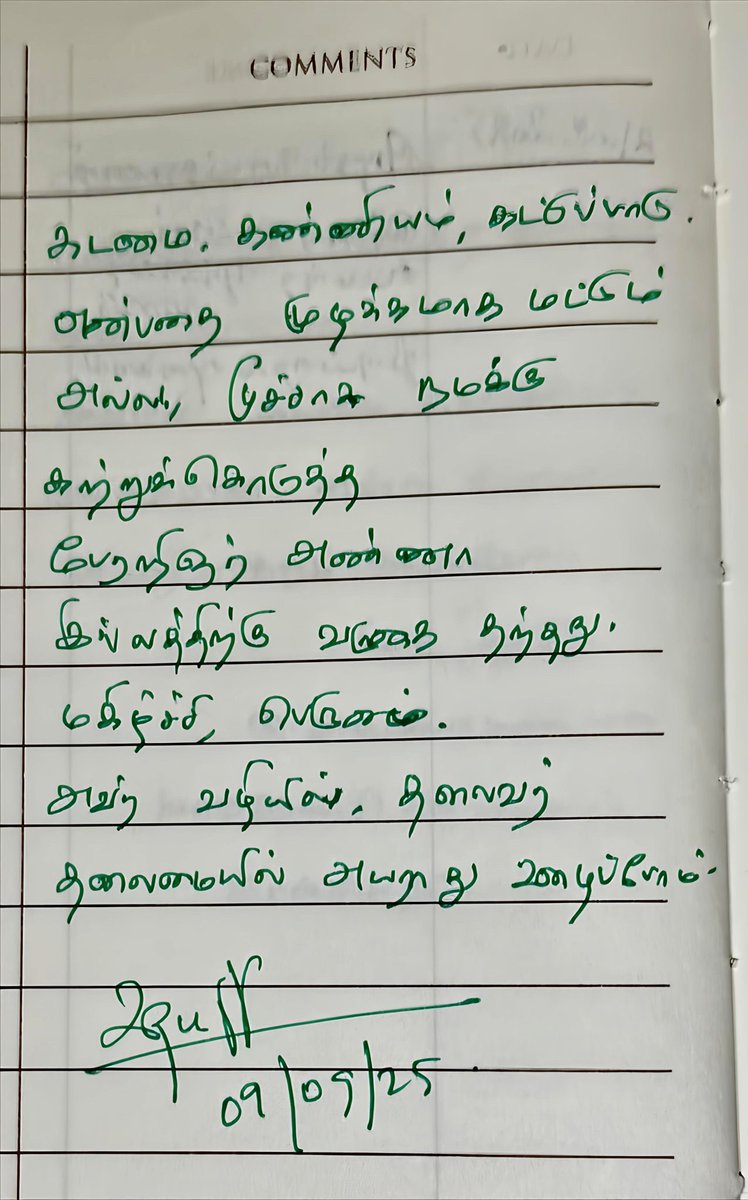 COMMENTS
கடமை, கண்ணியம், கட்டுப்பாடு.
என்பதை முழக்கமாக மட்டும்
அல்ல, மூச்சாக நமக்கு
கற்றுக்கொடுத்த
பேரறிஞர் அண்ணா
இல்லத்திற்கு வருகை தந்தது.
மகிழ்ச்சி, பெருமை.
அவர் வழியில், தலைவர்
தலைமையில் அயராது உழைப்போம்.
09/09/25